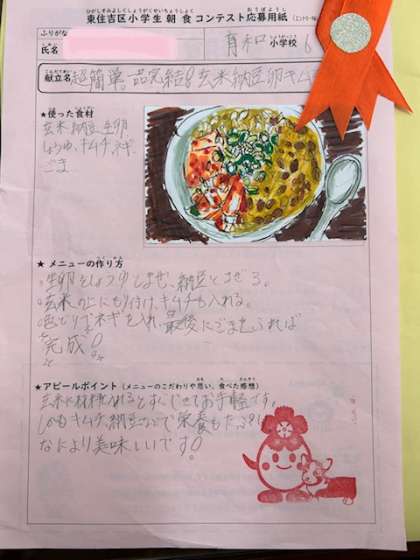 東住吉区小学生朝食コンテスト応募用紙
ふりがな
氏名
育和小学校 6
献立名 超簡単。一品完結!玄米納豆卵キム
★使った食材
玄米、納豆、生卵
しょうゆ、キムチ、ネギ、
ごま
★メニューの作り方
生卵としょうゆをまぜ、納豆とまぜる。
玄米の上にもり付け、キムチも入れる。
色どりでネギを入れ、最後にごまをふれば
完成!
★アピールポイント(メニューのこだわりや思い、食べた感想)
玄米に材料入れるとすぐにできてお手軽です。
しかもキムチ、納豆などで栄養もたっぷり
なにより美味しいです!